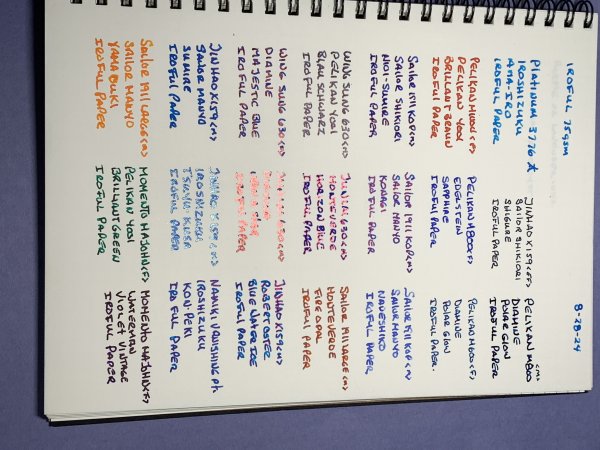 IROFUL 75gsm
8-28-24
PLATINUM 3776 *
IROSHIZUKU
AMA-IRO
IROFUL PAPER
JINHAO X159 (F)
SAILOR SHIKIORI
SHIGURE
IROFUL PAPER
PELIKAN M800 (M)
DIAMINE
POLAR GLOW
IROFUL PAPER
PELIKAN (F)
PELIKAN 4001
BRILLIANT BRAUN
IROFUL PAPER
PELIKAN M800 (F)
EDELSTEIN
SAPPHIRE
IROFUL PAPER
PELIKAN (F)
DIAMINE
POLAR GLOW
IROFUL PAPER.
SAILOR KOP (M)
SAILOR SHIKIORI
NIOI-SUMIRE
IROFUL PAPER
SAILOR 1911 KOP (M)
SAILOR MANYO
KONAGI
IROFUL PAPER
SAILOR 1911 KOP (M)
SAILOR MANYO
NADESHIKO
IROFUL PAPER
WING SUNG 630 (M)
PELIKAN 4001
BLAU SCHWARZ
IROFUL PAPER
630 (M)
MONTEVERDE
HORIZON BLUE
IROFUL PAPER
SAILOR 1911 LARGE (M)
MONTEVERDE
FIRE OPAL
IROFUL PAPER
WING SUNG 630 (M)
DIAMINE
MAJESTIC BLUE
IROFUL PAPER
630 (M)
IROFUL PAPER
JINHAO X159 (M)
ROBERT OSTER
BLUE WATER ICE
IROFUL PAPER
JINHAO X159 (M)
SAILOR MANYO
SUMIRE
IROFUL PAPER
JINHAO
IROSHIZUKU
TSUYU-KUSA
IROFUL PAPER
NAMIKI VANISHING Pt
IROSHIZUKU
KON-PEKI
IROFUL PAPER
SAILOR 1911 LARGE (M)
SAILOR MANYO
YAMABUKI
IROFUL PAPER
MOMENTO MAJOHN (F)
PELIKAN 4001
BRILLIANT GREEN
IROFUL PAPER
MOMENTO MAJOHN (F)
WATERMAN
VIOLET VINTAGE
IROFUL PAPER